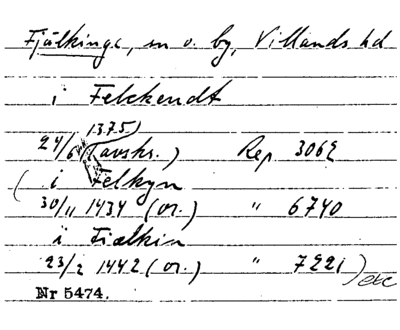 Fjälkinge, sn o. by, Villands hd
i Felckendt
1375)
24/6 (avskr.) Rep 3062
( i Felkyn
30/11 1434 (or.) " 6740
i Fiælkin
23/2 1442 (or.) " 7221) etc
Nr 5474.